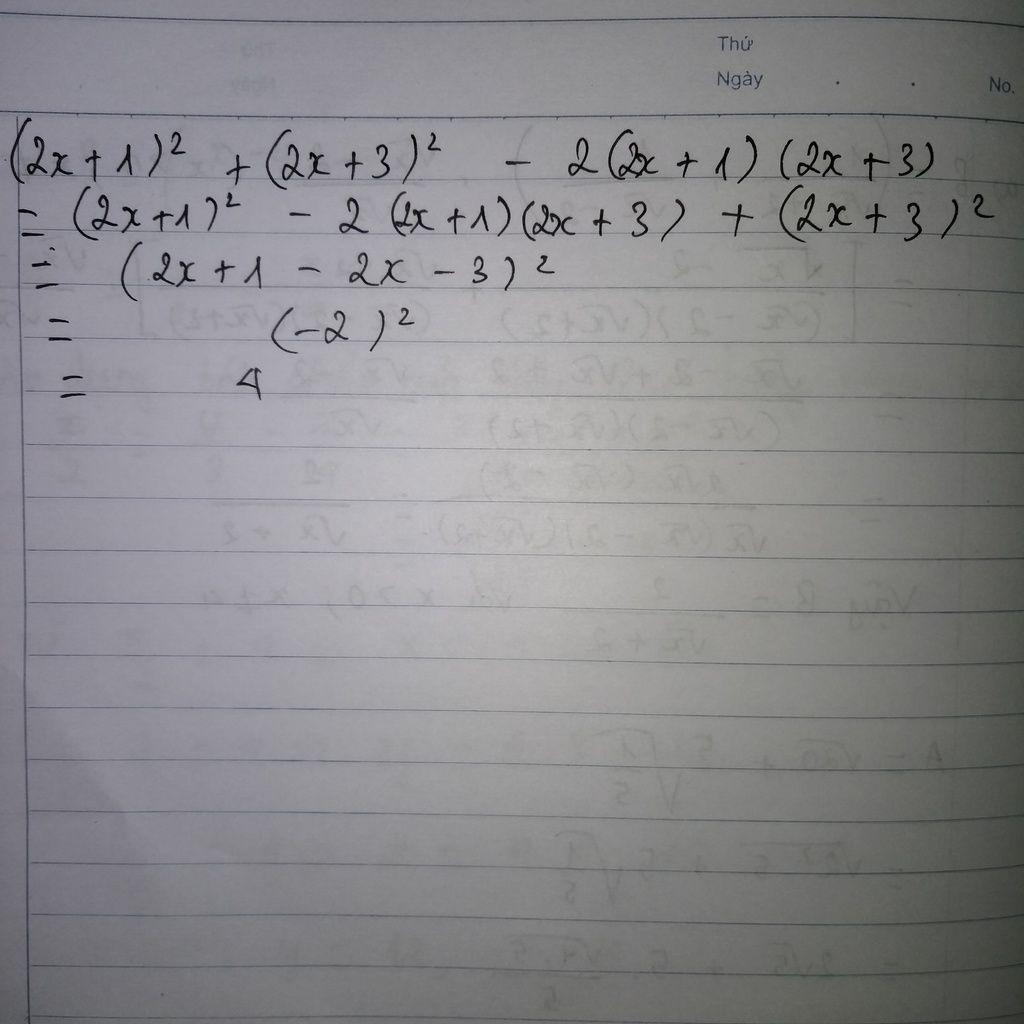 Thứ
Ngày . . No.
(2x + 1)² + (2x + 3)² - 2(2x + 1) (2x + 3)
= (2x + 1)² - 2 (2x + 1) (2x + 3) + (2x + 3)²
= (2x + 1 - 2x - 3)²
= (-2)²
= 4